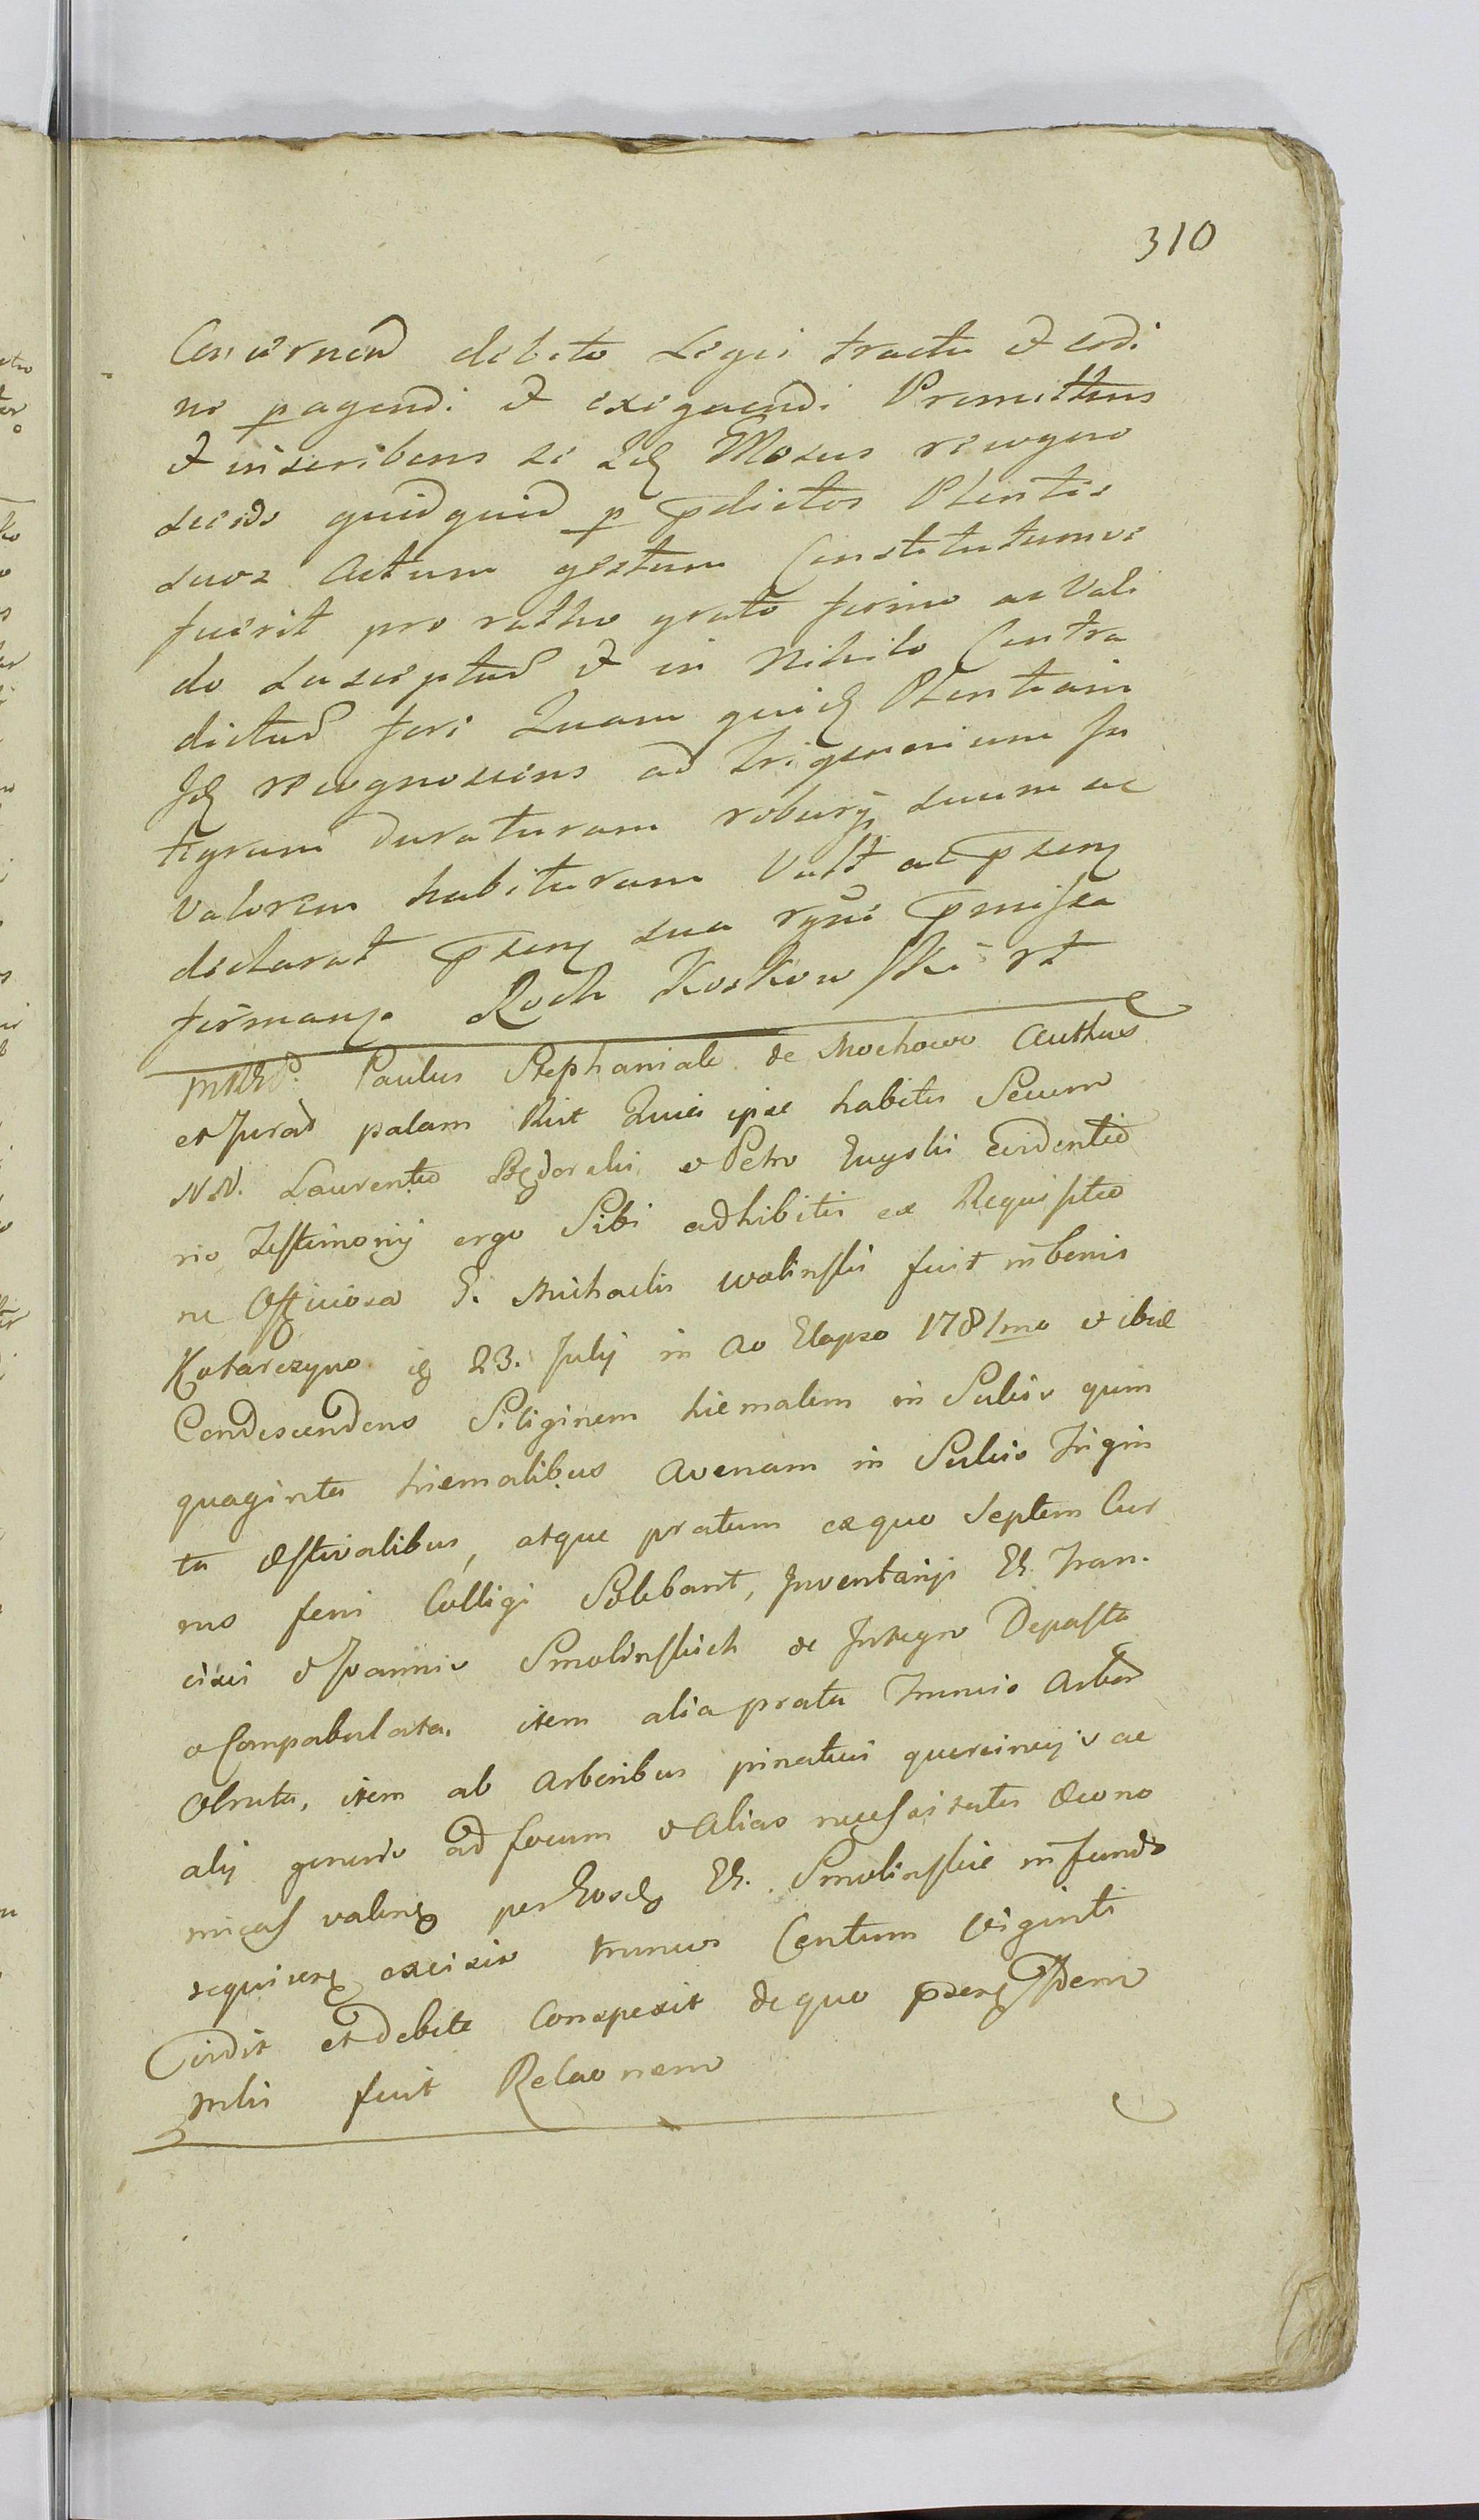 310
Concernend debito Legis tractu et ordi
ne p agendi et exequendi Promittens
et inscribens se Idq Mosus recogno
scendo quidquid p pdictos Plentes
suos Actum gestum Constitutumve
fuerit pro ratho grato firmo ac Vali
do Susciptur et in Nihilo Contra
dictur fori Quam quidq Plentiam
Idq recognoscens ad trigenarium In
tigrum duraturam roburq suum ac
Valorem habituram Vult ac psenq
declarat psenq sua rgni pmissa
firmanse Roch Koskowski rt
Paulus Stephaniak de Mochowo Authus
et Jurad palam Rlit Quia ipse habitis Secum
NN. Laurentio Będorski et Petro Zuyski Evidentio
rio Testimonij ergo Sibi adhibitis ex Requisitio
ne Officiosa G. Michaelis Wolinski fuit in bonis
Kotarczyno 23. Julij in Ao Elapso 1781mo et ibid
Condescendens Siliginem hiemalem in Sulcis quin
quaginta hiemalibus Avenam in Sulcis Trigin
ta Æstivalibus, atque pratum ex quo Septem Cur
rus feni Colligi Solebant, Inventarijs GG. Fran-
cisci et Joannis Smolinskich de Integro Depasta
et Compabulata, item alia prata Truncis Arbor
Obruta, item ab Arboribus pinatuis quercineis ac
alij generis ad focum et Alias necessitates Œcono
micas valenq per Eosdq GG. Smolinskie in fundo
requirenq excisis truncos Centum Viginti
Vidit et debite Conspexit de quo psenq Idem
Mlis fuit Relaonem